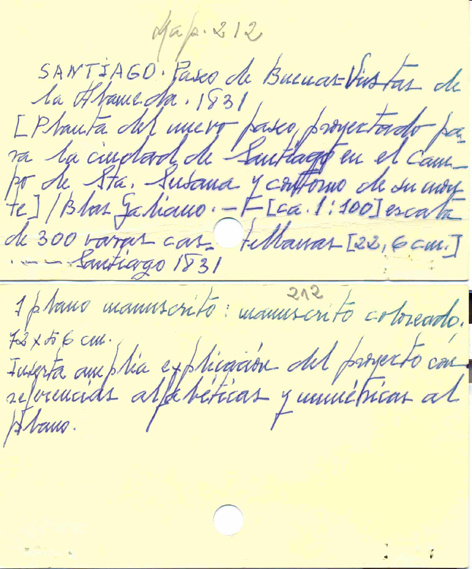 Map. 212
SANTIAGO. Paseo de Buenas=Vistas de
la Alameda. 1831
[Planta del nuevo paseo, proyectado pa-
ra la ciudad de Santiago en el Cam-
po de Sta. Susana y contorno de su mon-
te] / Blas Galiano. — [ca. 1:100] escala
de 300 varas cas= tellanas [22,6 cm.]
. — — Santiago 1831
212
1 plano manuscrito: manuscrito coloreado.
72 x 56 cm.
Inserta amplia explicación del proyecto con
referencias alfabéticas y numéricas al
plano.